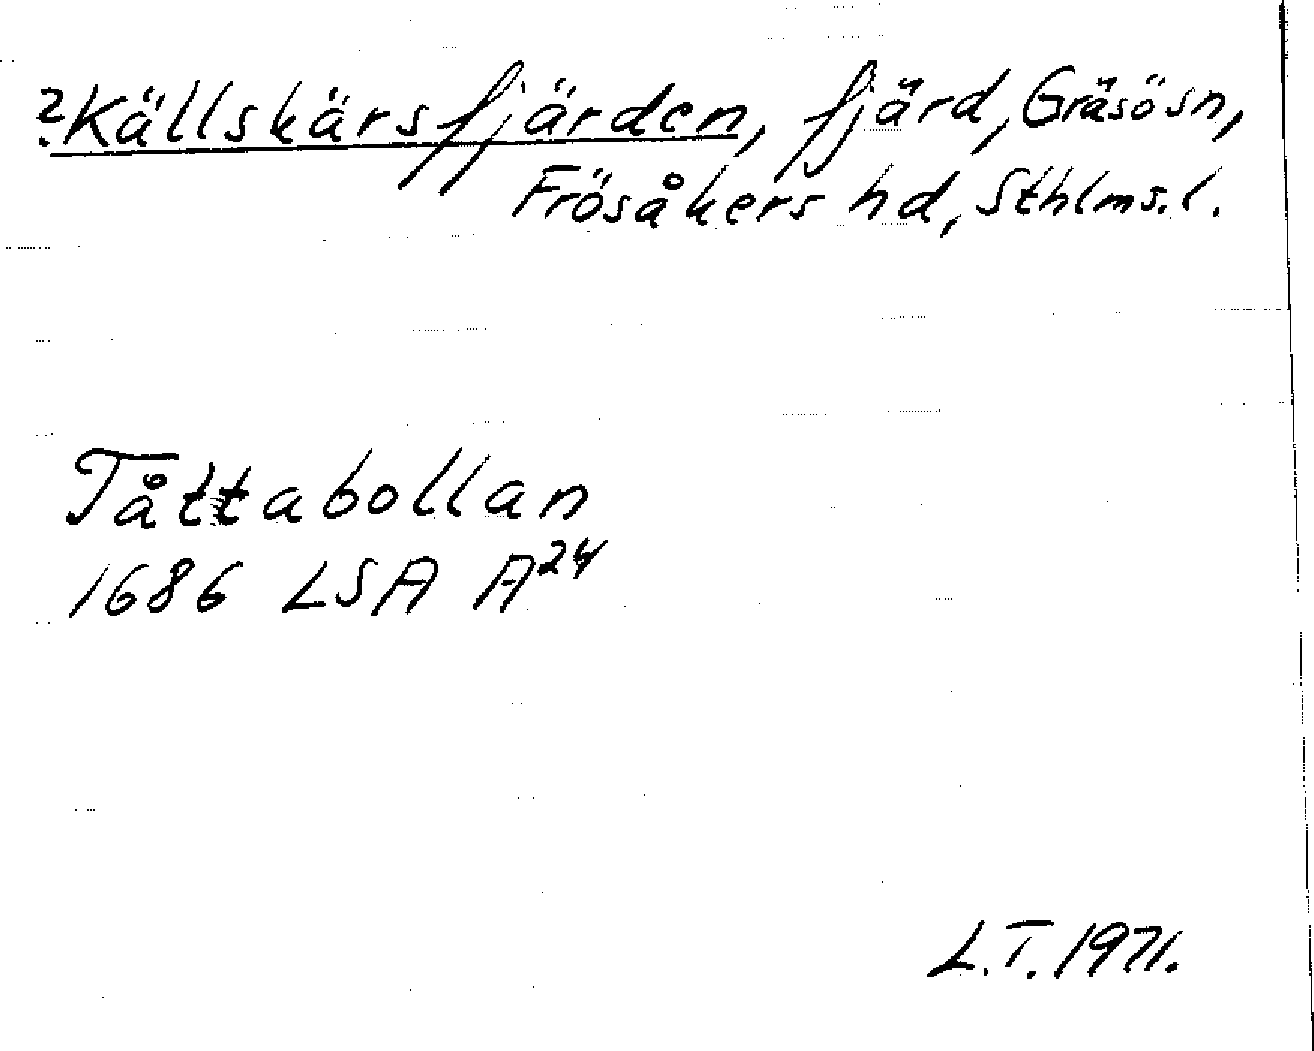 ?Källskärsfjärden, fjärd, Gräsösn,
Frösåkers hd, Sthlms. l.
Tåttabollan
1686 LSA A24
L.T. 1971.